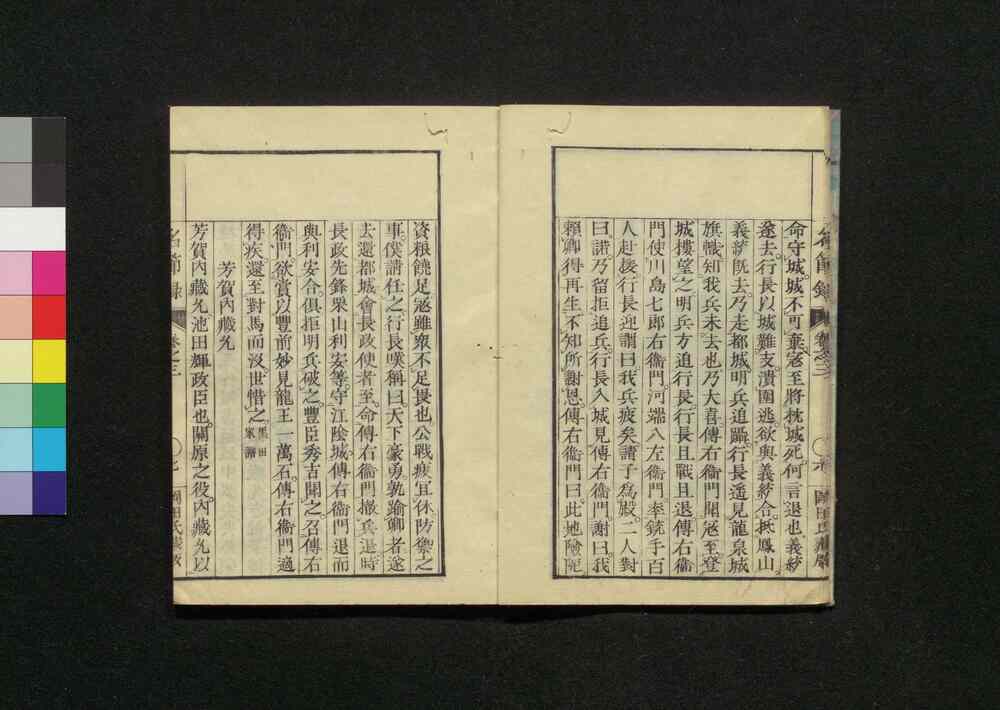 命守城城不可棄寇至將枕城死何言退也義統
遂去行長以城難支潰圍逃欲與義統合抵鳳山
義統既去乃走都城明兵追躡行長遙見龍泉城
旗幟知我兵未去也乃大喜傳右衞門聞寇至登
城摟望之明兵方追行長行長且戰且退傳右衞
門使川島七郎右衞門河端八左衞門率銃手百
人赴援行長迎謂曰我兵疲矣諸子為殿二人對
曰諾乃留拒追兵行長入城見傳右衞門謝曰我
賴卿得再生不知所謝恩傳右衞門曰此地險阨
資粮饒足寇雖衆不足畏也公戰疲宜休防禦之
事僕請任之行長嘆稱曰天下豪勇孰踰卿者遂
去還都城會長政使者至命傳右衞門撤兵退時
長政先鋒栗山利安等守江陰城傳右衞門退而
與利安合俱拒明兵破之豐臣秀吉聞之召傳右
衞門欲賞以豐前妙見龍王一萬石傳右衞門適
得疾還至對馬而沒世惜之黑田家譜
芳賀內藏允
芳賀內藏允池田輝政臣也關原之役內藏允以
名節錄 卷之三
岡田氏藏